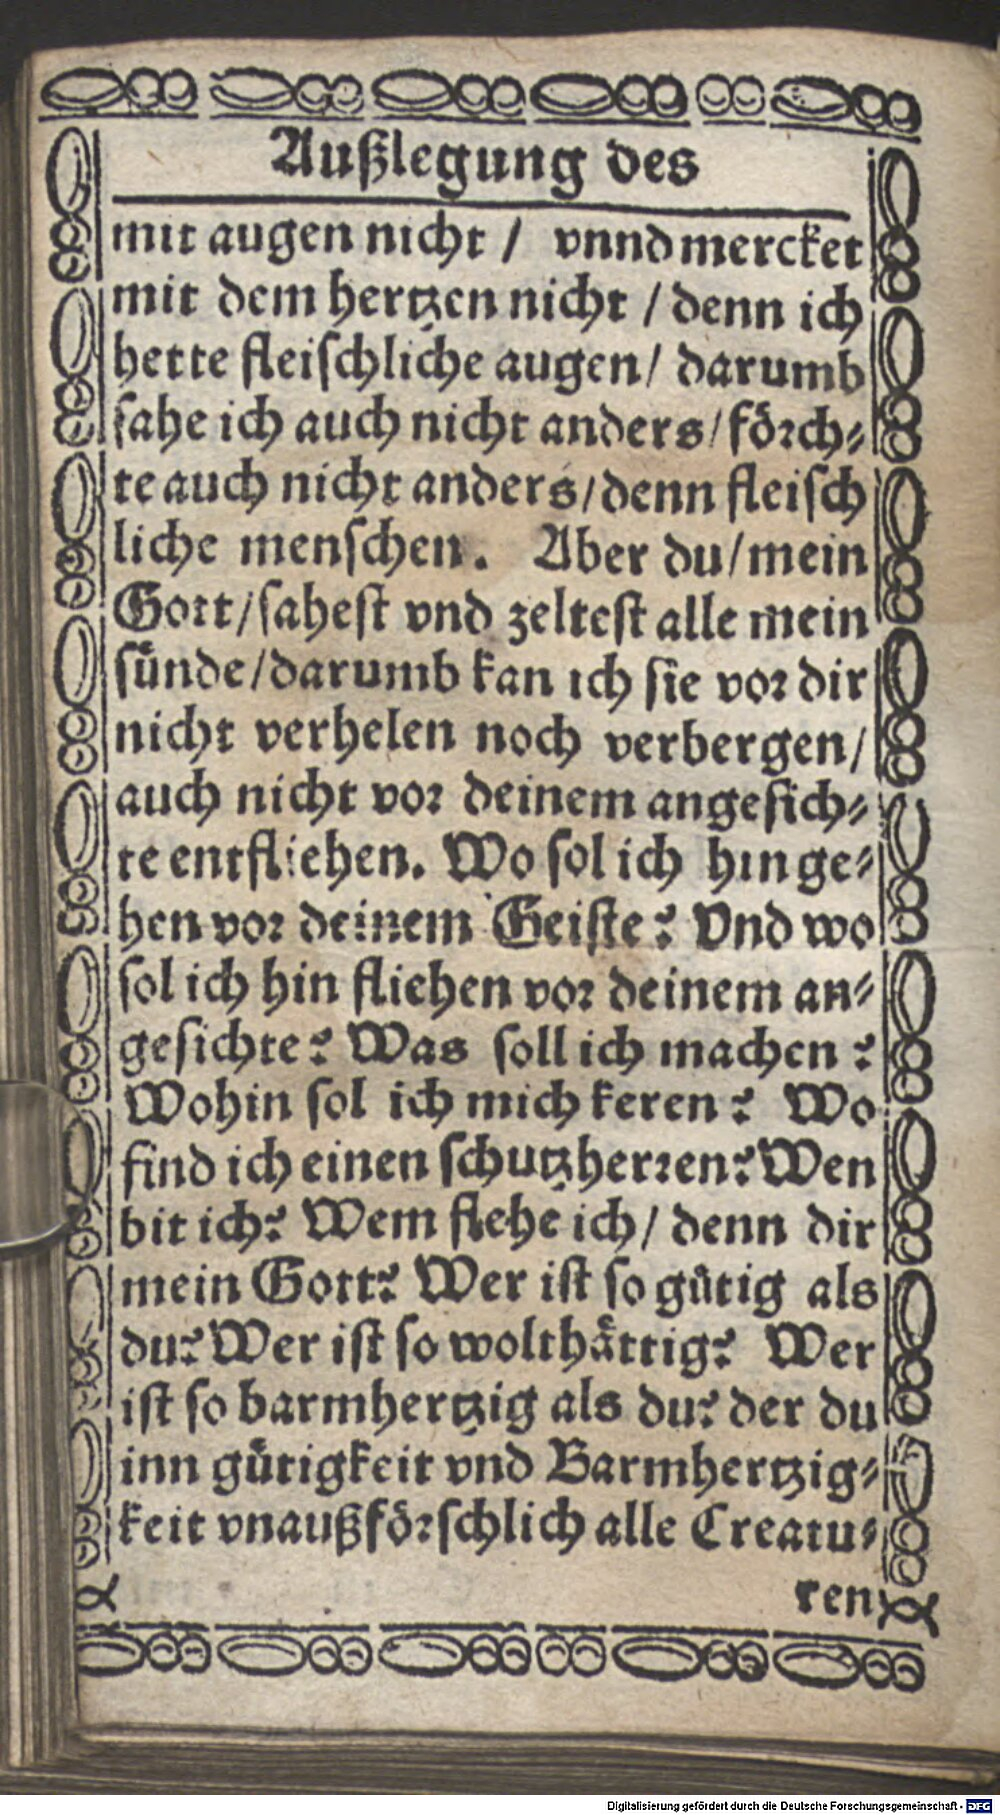 Außlegung des
mit augen nicht / vnnd mercket
mit dem hertzen nicht / denn ich
hette fleischliche augen / darumb
sahe ich auch nicht anders / förch-
te auch nicht anders / denn fleisch
liche menschen. Aber du / mein
Gott / sahest vnd zeltest alle mein
sünde / darumb kan ich sie vor dir
nicht verhelen noch verbergen /
auch nicht vor deinem angesich-
te entfliehen. Wo sol ich hin ge-
hen vor deinem Geiste? Vnd wo
sol ich hin fliehen vor deinem an-
gesichte? Was soll ich machen?
Wohin sol ich mich keren? Wo
find ich einen schutzherren? Wen
bit ich? Wem flehe ich / denn dir
mein Gott? Wer ist so gütig als
du? Wer ist so wolthättig? Wer
ist so barmhertzig als du? der du
inn gütigkeit vnd Barmhertzig-
keit vnaußförschlich alle Creatu-
ren
Digitalisierung gefördert durch die Deutsche Forschungsgemeinschaft - DFG